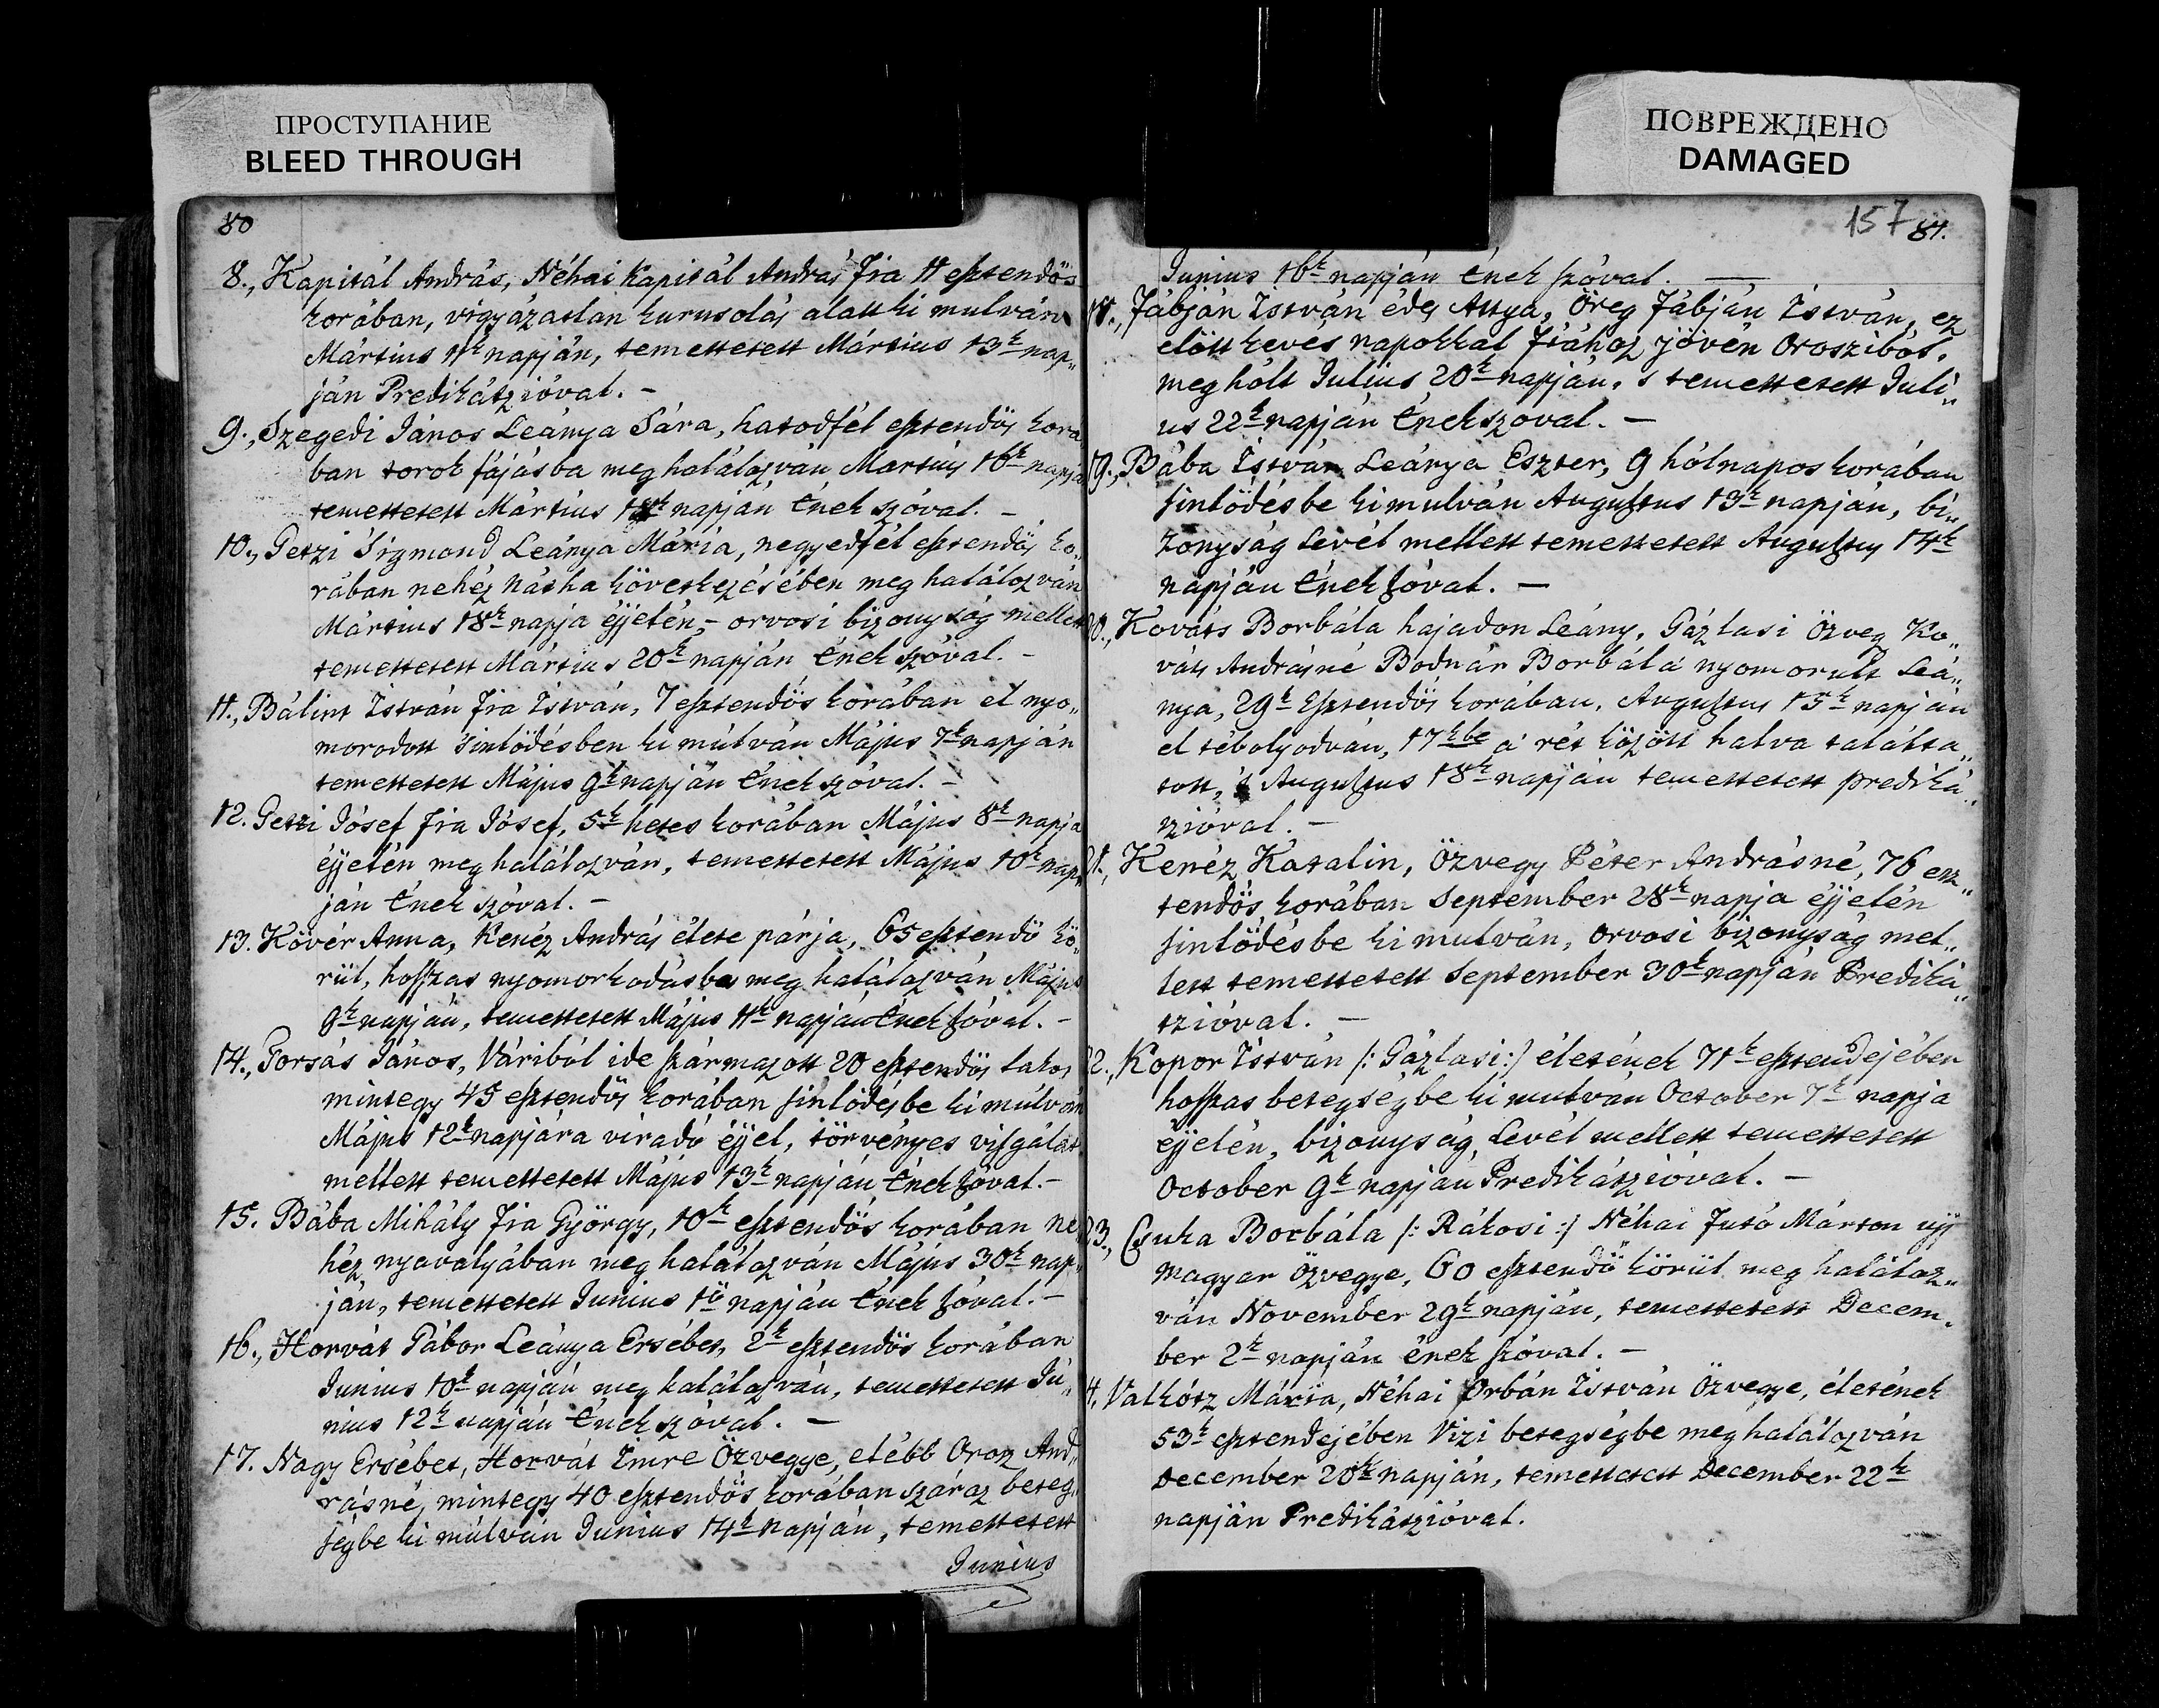 ПРОСТУПАНИЕ
BLEED THROUGH
ПОВРЕЖДЕНО
DAMAGED
80
8., Kapitál András, Néhai Kapitál András fia 11 esztendős
korában, vigyázatlan kurusolás alatt ki mulván
Mártius 11k napján, temettetett Mártius 13k nap„
ján Predikátzióval. –
9., Szegedi János Leánya Sára, hatodfél esztendős kora
ban torok fájásba meg halálozván Martius 16k napja
temettetett Mártius 18k napján Ének szóval. –
10., Getzi Sigmond Leánya Mária, negyedfél esztendős ko„
rában nehéz nátha következésében meg halálozván
Mártius 18k napja éjjelén, – orvosi bizonyság mellett
temettetett Mártius 20k napján Ének szóval. –
11., Bálint István fia István, 7 esztendős korában el nyo„
morodott sinlödésben ki múlván Május 7k napján
temettetett Május 9k napján Ének szóval. –
12. Getzi Jósef fia Jósef, 5k hetes korában Május 8k napja
éjjelén meg halálozván, temettetett Május 10k nap„
ján Ének szóval. –
13. Kövér Anna, Kenéz András élete párja, 65 esztendő kö„
rül, hosszas nyomorkodásba meg halálozván Május
9k napján, temettetett Május 11k napján Ének szóval. –
14., Forsás János, Váriból ide származott 20 esztendős lakos
mintegy 45 esztendős korában sinlődésbe ki múlván
Május 12k napjára viradó éjjel, törvényes visgálat
mellett temettetett Május 13k napján Ének szóval. –
15. Bába Mihály fia György, 10k esztendős korában ne
héz nyavalyában meg halálozván Május 30k nap„
ján, temettetett Junius 1ő napján Ének szóval. –
16., Horvát Gábor Leánya Ersébet, 2k esztendős korában
Junius 10k napján meg halálozván, temettetett Ju„
nius 12k napján Ének szóval. –
17. Nagy Ersébet, Horvát Imre Özvegye, elébb Orosz And„
rásné, mintegy 40 esztendős korában száraz beteg„
ségbe ki múlván Junius 14k napján, temettetett
Junius
157 81.
Junius 16k napján Ének szóval. –
18., Fábján István édes Attya, Öreg Fábján István, ez
előtt kevés napokkal fiához jövén Orosziból,
meg hólt Julius 20k napján, s temettetett Juli„
us 22k napján Ének szóval. –
19., Bába István Leánya Eszter, 9 hólnapos korában
sinlödésbe ki mulván Augustus 13k napján, bi„
zonyság Levél mellett temettetett Augustus 14k
napján Ének szóval. –
20., Kováts Borbála hajadon Leány, Gázlasi Özveg Ko„
váts Andrásné Bodnár Borbála nyomorult Leá„
nya, 29k Esztendős korában, Augustus 15k napján
el tébolyodván, 17kbe a' rét között halva találta„
tott, 's Augustus 18k napján temettetett prediká„
tzióval. –
21., Kenéz Katalin, Özvegy Péter Andrásné, 76 esz„
tendős korában September 28k napja éjjelén
sinlödésbe ki mulván, orvosi bizonyság mel„
lett temettetett September 30k napján Prediká„
tzióval. –
22., Kopor István /: Gázlasi :/ életének 71k esztendejében
hosszas betegségbe ki mulván October 7k napja
éjjelén, bizonyság Levél mellett temettetett
October 9k napján Predikátzióval. –
23., Csuka Borbála /: Rákosi :/ Néhai Jutó Márton ujj
magyar Özvegye, 60 esztendő körül meg haláloz„
ván November 29k napján, temettetett Decem„
ber 2k napján ének szóval. –
4. Valkótz Mária, Néhai Orbán István Özvegye, életének
53k esztendejében Vizi betegségbe meg halálozván
December 20k napján, temettetett December 22k
napján Predikátzióval.